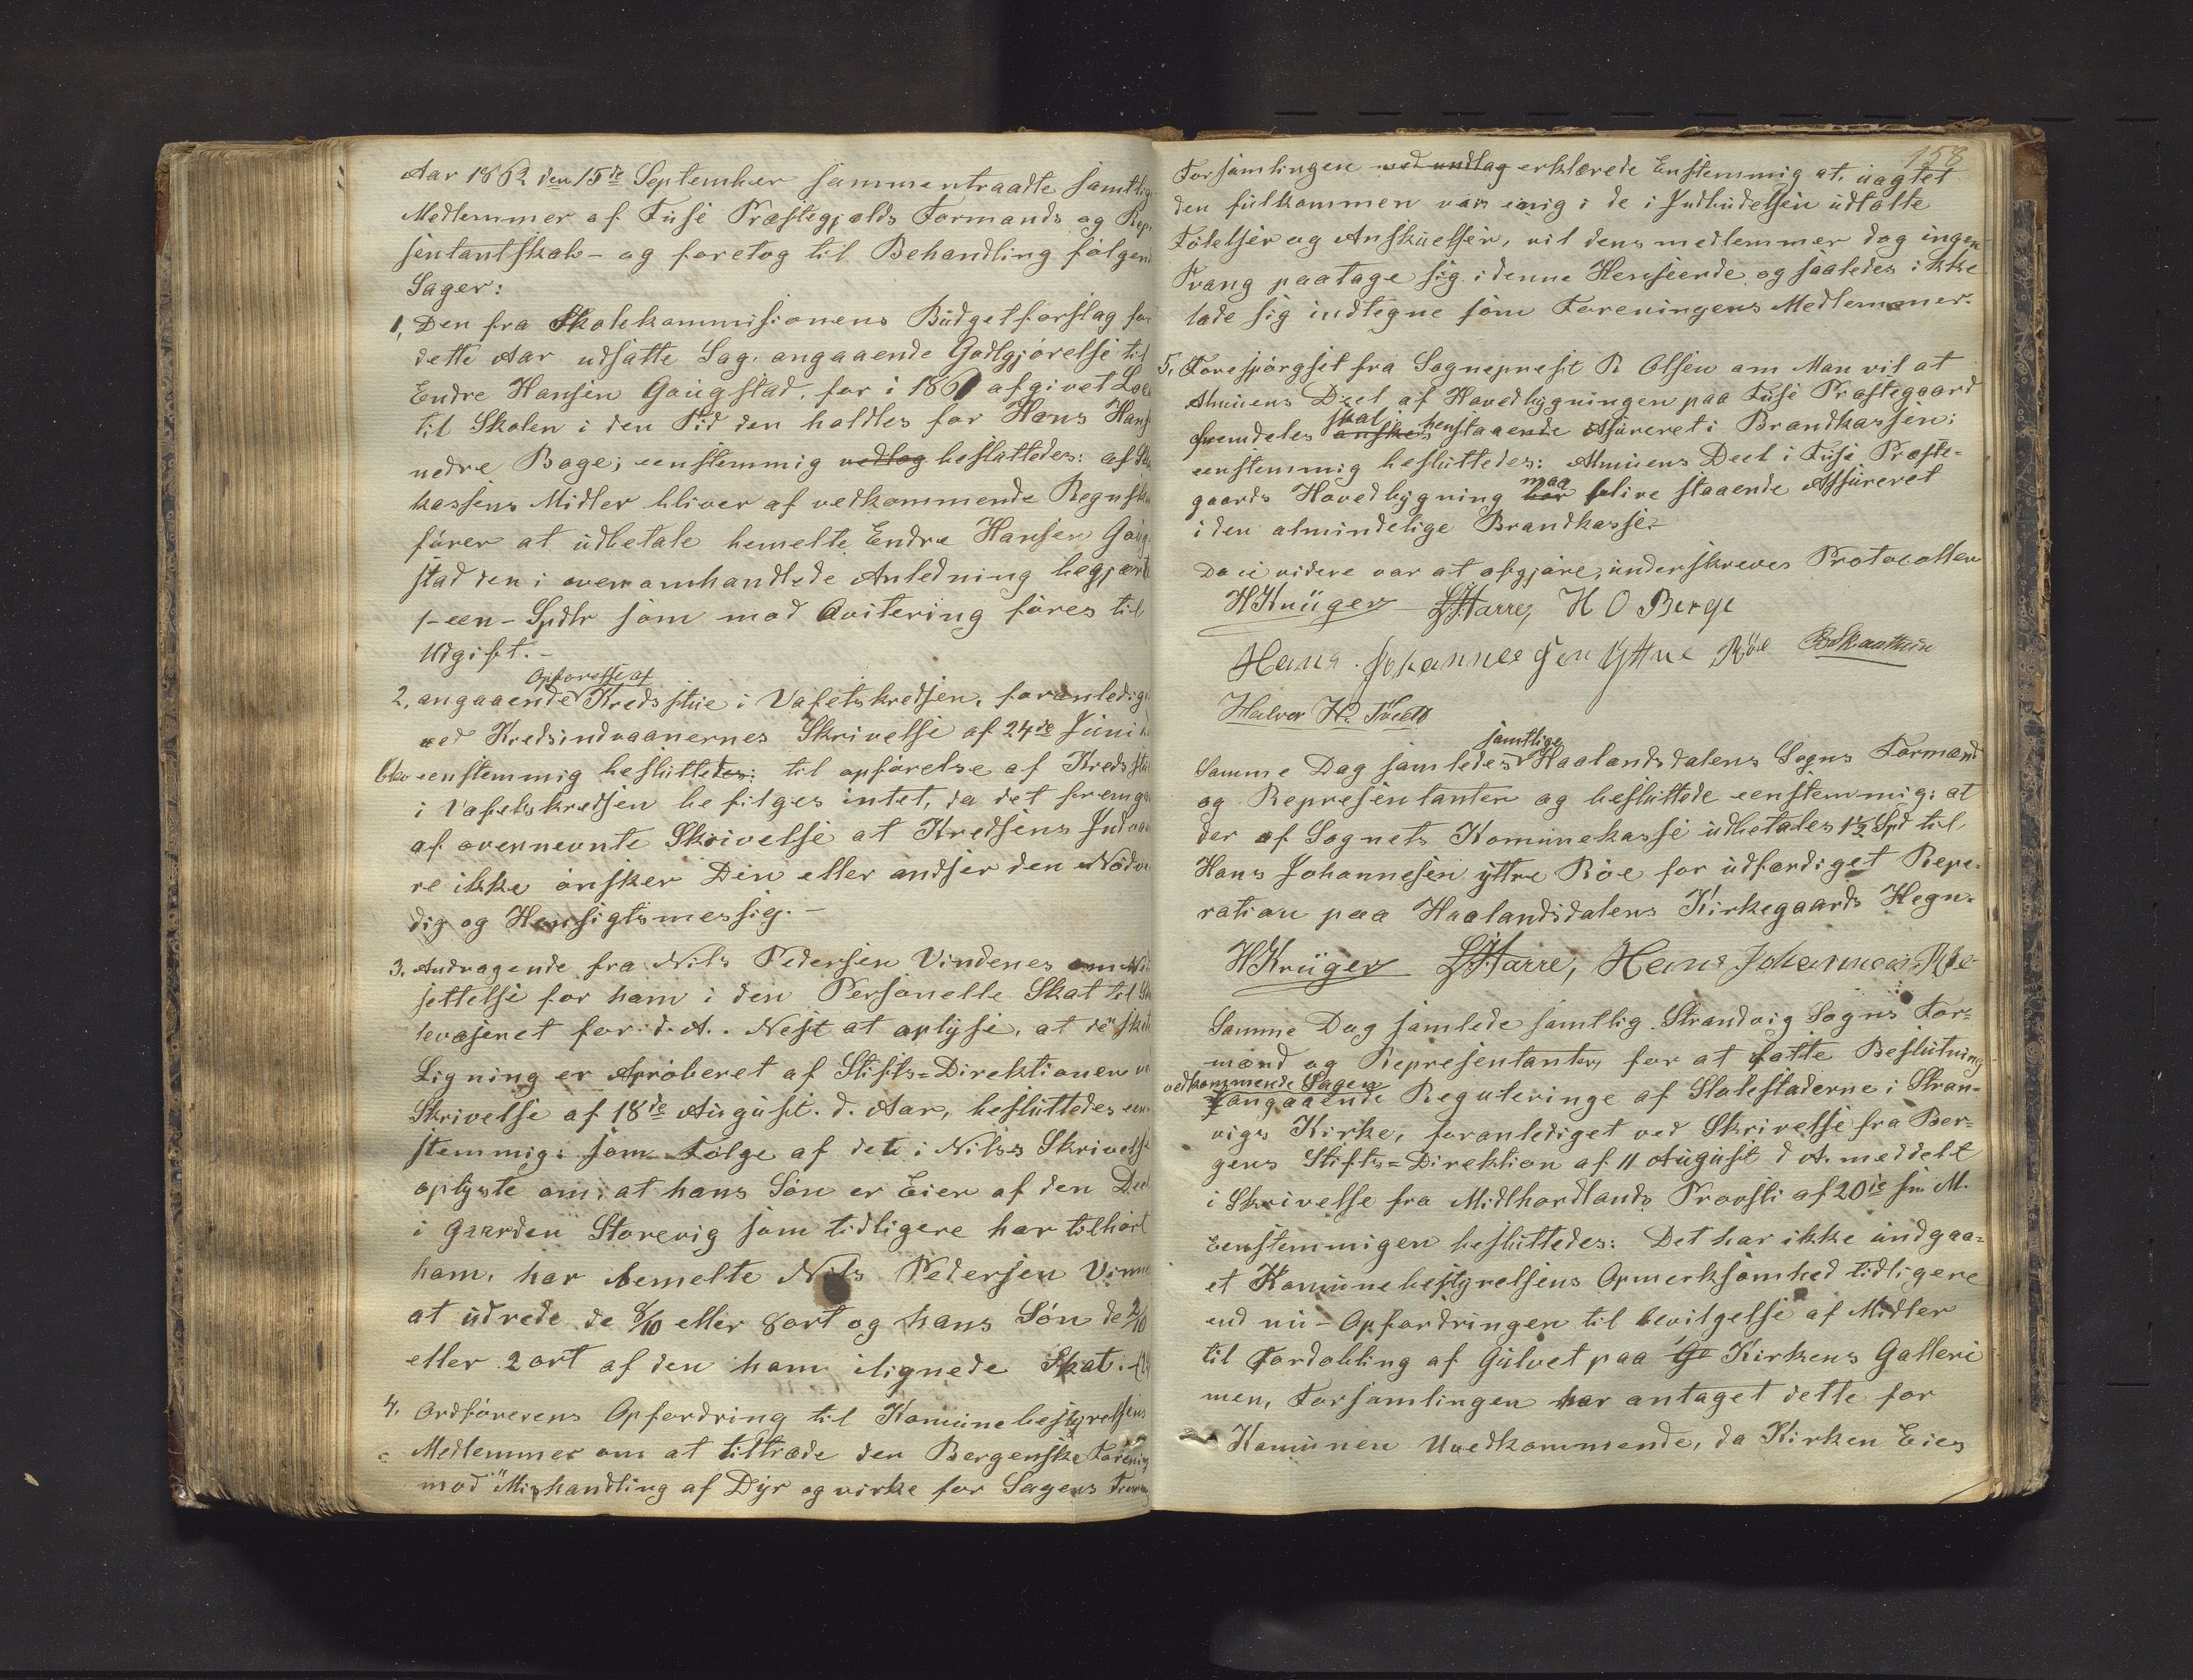 Aar 1862 den 15de September sammentraadte samtlig
Medlemmer af Fuse Præstegjælds Formands og Rep.
sentantskab - og foretog til Behandling følgen
Sager:
1, Den fra Skolekommisionens Budgetforslag for
dette Aar udsatte Sag, angaaende Godtgjørelse til
Endre Hansen Gaugstad, for i 1861 afgivet Loc
til Skolen i den Tid den holdtes for Hans Hans
nedre Bage; eenstemmig vedtog besluttedes: af Sko
kassens Midler bliver af vedkommende Regnsk
fører at udbetale bemelte Endre Hansen Gaug
stad den i overomhandlede Anledning begjært
1-een-Spdlr som mod Qvitering føres til
Udgift.-
Opførelse af
2, angaaende Kredsstue i Vafetskredsen, foranledig
ved Kredsindvaanernes Skrivelse af 24de Juni
blev eenstemmig besluttedes: til opførelse af Kredsstu
i Vafetskredsen befilges intet, da det fremga
af overnevnte Skrivelse at Kredsens Indvaa
re ikke ønsker Den eller andser den Nødve
dig og Hensigtsmessig.-
3. Andragende fra Nils Pedersen Vindenes om Ned
settelse for ham i den Personelle Skat til Sko
levæsenet for d. A. Nest at oplyse, at de skete
Ligning er Aproberet af Stifts=Direktionen ve
Skrivelse af 18de August d. Aar, besluttedes een
stemmig: som Følge af det i Nilses Skrivelse
oplyste om, at hans Søn er Eier af den Deel
i Gaarden Storevig som tidligere har tilhørt
ham, har bemelte Nils Pedersen Vinne
at udrede de 8/10 eller 8 ort og hans Søn de 2/10
eller 2 ort af den ham ilignede Skat.
4. Ordførerens Opfordring til Komunebestyrelsens
Medlemmer om at tiltræde den Bergenske Forening
mod "Mishandling af Dyr og virke for Sagens Fremme
158
Forsamlingen ved undtag erklærede Enstemmig at, uagtet
den fulkommen var enig i de i Indbudelsen udtalte
Følelser og Anskuelser, vil dens medlemmer dog ingen
Tvang paatage sig i denne Henseende og saaledes ikke
lade sig indtegne som Foreningens Medlemmer.
5, Forespørgsel fra Sognepresst R Olsen om Man vil at
Almuens Deel af Hovedbygningen paa Fuse Præstegaard
skal
fremdeles ønskes henstaaende Asureret i Brandkassen;
eenstemmig besluttedes: Almuens Deel i Fuse Præste-
maa
gaards Hovedbygning bør blive staaende Assureret
i den almindelige Brandkasse.
Da ei videre var at afgjøre, underskreves Protocollen
HKrüger LHarre, H O Berge
Hans Johannessen Yttre Röe
Halvor H. Tveit
samtlige
Samme Dag samledes Haalandsdalens Sogns Formænd
og Representanter og besluttede eenstemmig: at
der af Sognets Komunekasse udbetales 1½ Spd til
Hans Johannesen yttre Röe for udfærdiget Repe-
ration paa Haalandsdalens Kirkegaards Hegn.
HKrüger LHarre, Hans Johannes: Röe
Samme Dag samlede samtlig Strandvig Sogns For=
mænd og Representanter for at fatte Beslutning
vedkommende Sagen
angaaende Reguleringe af Stolestaderne i Stran-
vigs Kirke, foranlediget ved Skrivelse fra Ber=
gens Stifts=Direktion af 11 August d A. meddelt
i Skrivelse fra Midhordlands Provsti af 20de s. M.
Eenstemmigen besluttedes: Det har ikke undgaa=
et Komunebestyrelsens Opmerksomhed tidligere
end nu - Opfordringen til bevilgelse af Midler
til Fordobling af Gulvet paa Ga Kirkens Galleri
men, Forsamlingen har antaget dette for
Komunen Uvedkommende, da Kirken Eies